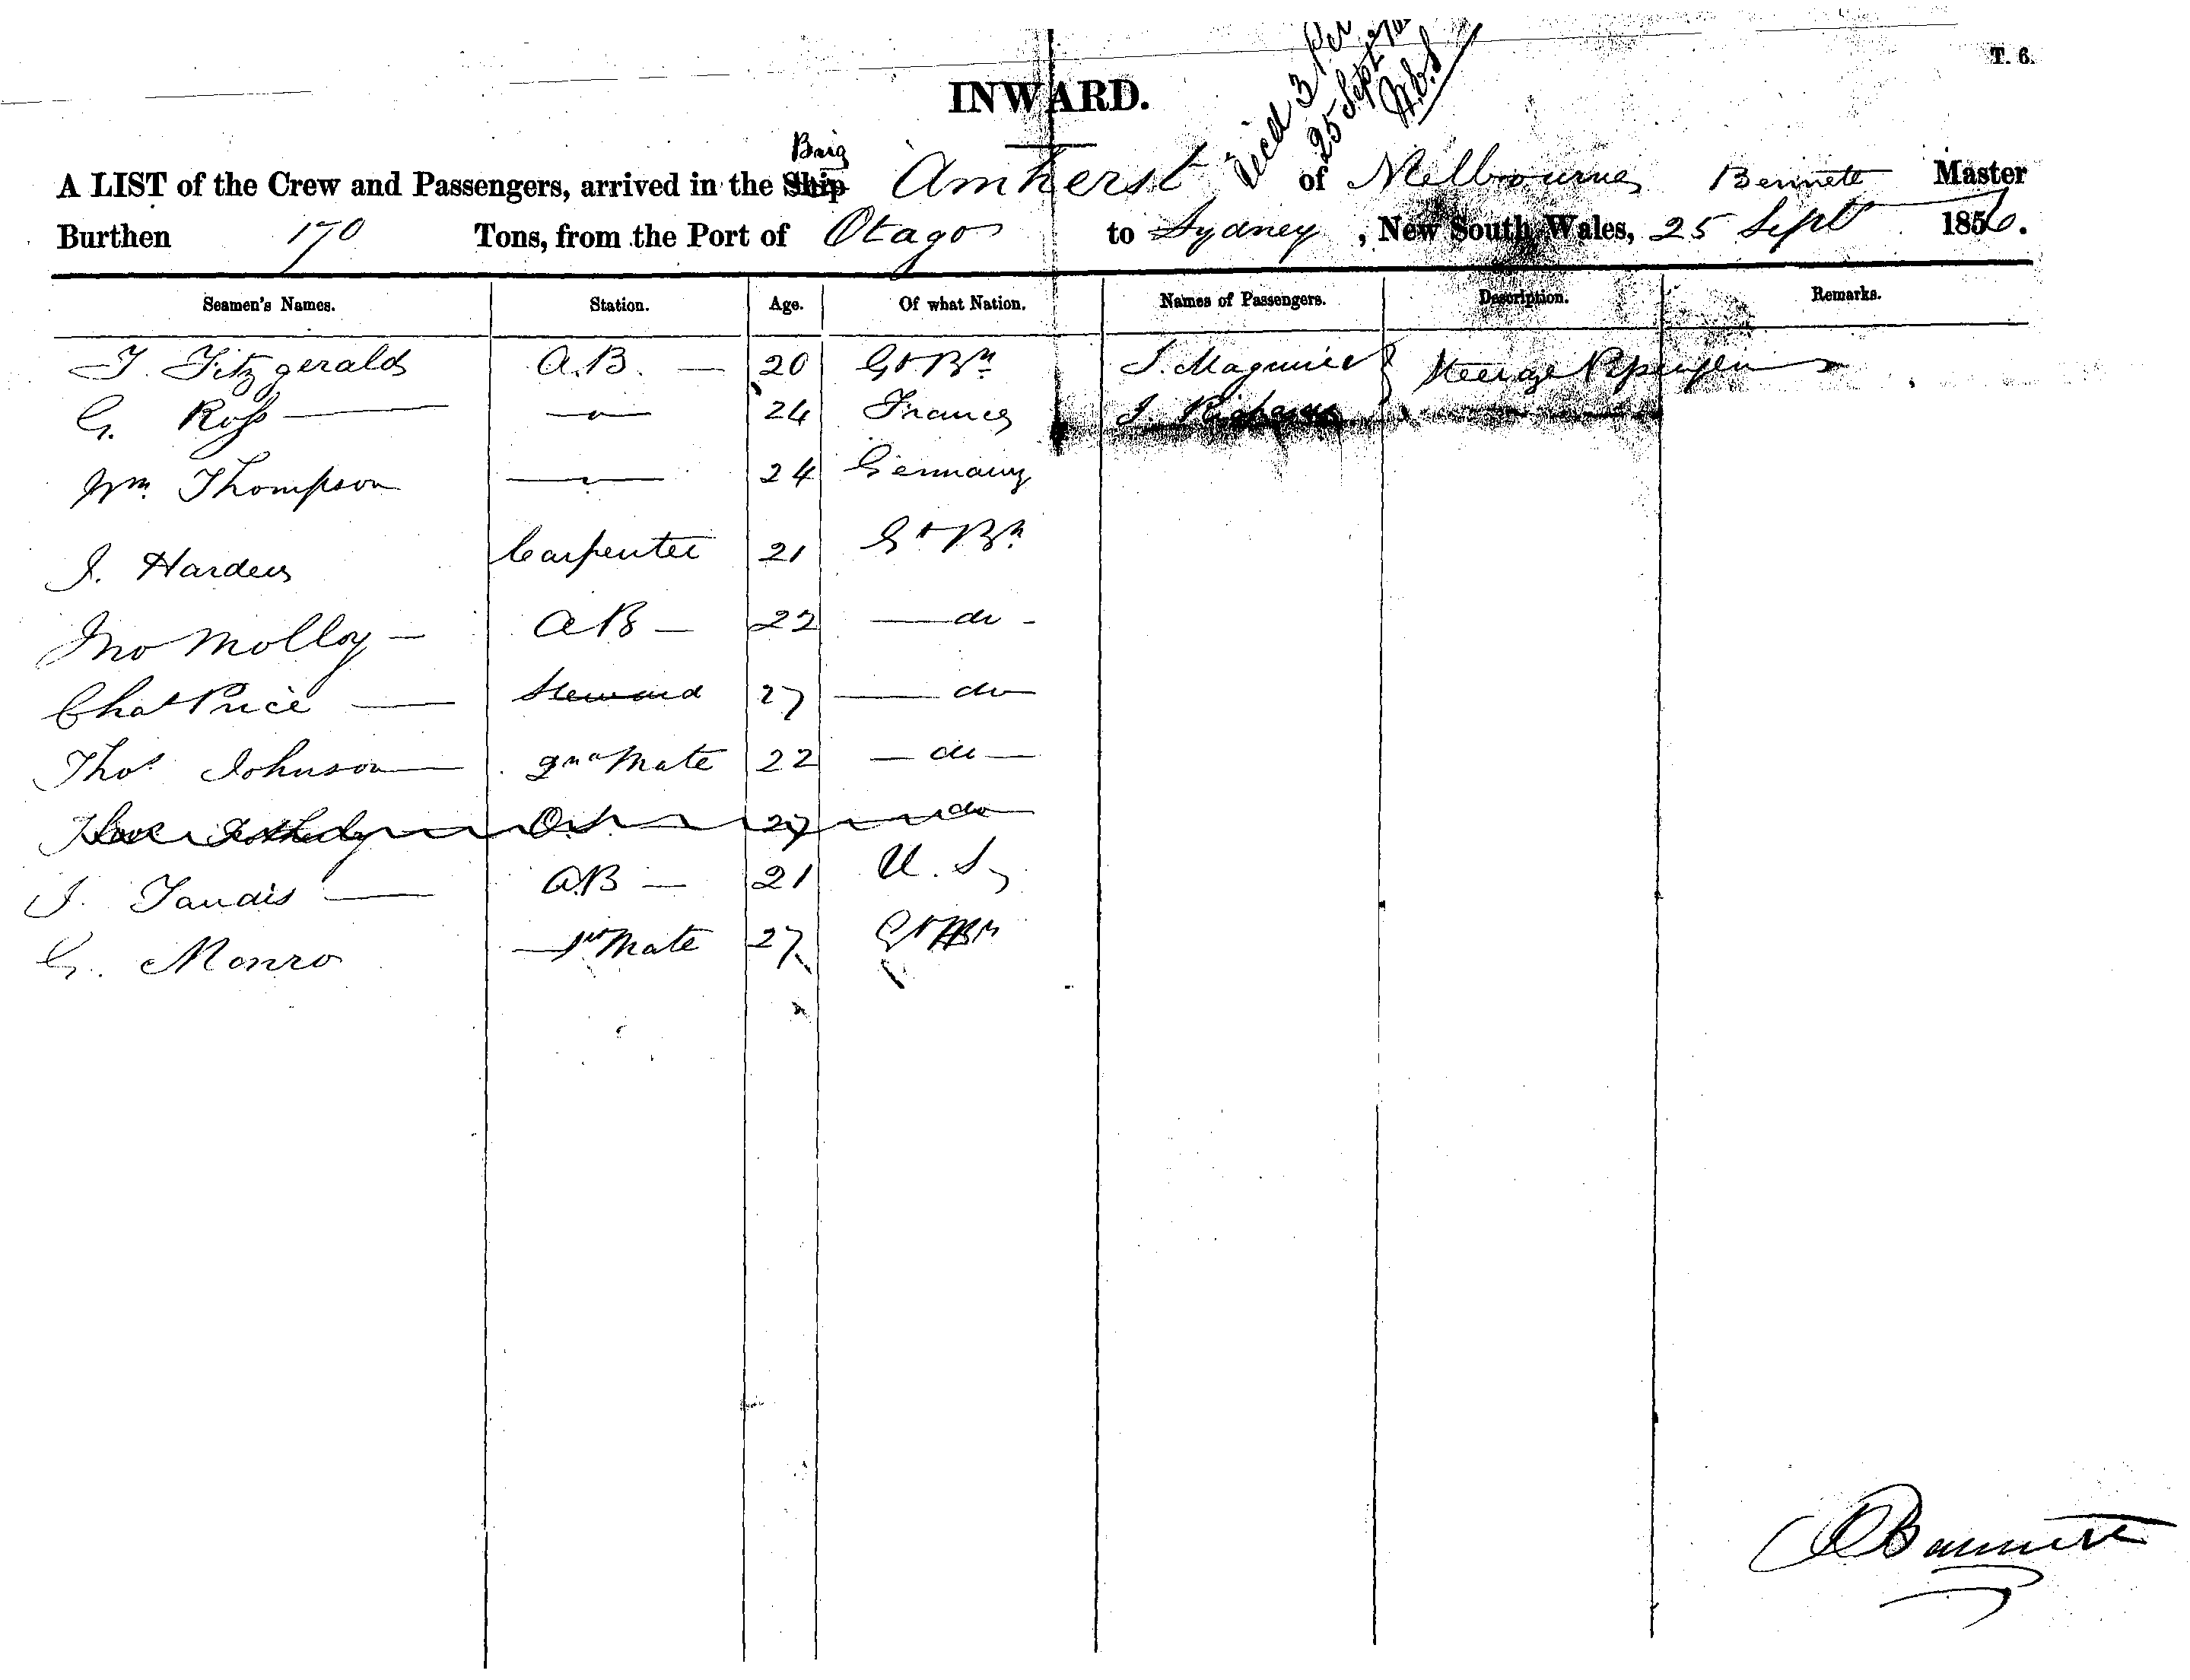 T. 6.
INWARD.
25 Sept
Brig
A LIST of the Crew and Passengers, arrived in the Ship Amherst of Melbourne Bennett Master
Burthen 170 Tons, from the Port of Otago to Sydney, New South Wales, 25 Sept 1856.
Seamen's Names. Station. Age. Of what Nation. Names of Passengers. Description. Remarks.
T. Fitzgerald A.B. — 20 Gt Bn J. Maguire } Steerage
G. Ross — 24 France J. Richards
Wm Thompson — 24 Germany
J. Harden Carpenter 21 Gt Bn
Jno Molloy — AB — 22 — do -
Chas Price — Steward 27 — do
Thos Johnson 2nd Mate 22 — do —
27 do
J. — AB — 21 U.S.
G. Monro 1st Mate 27 Gt Bn
Bennett